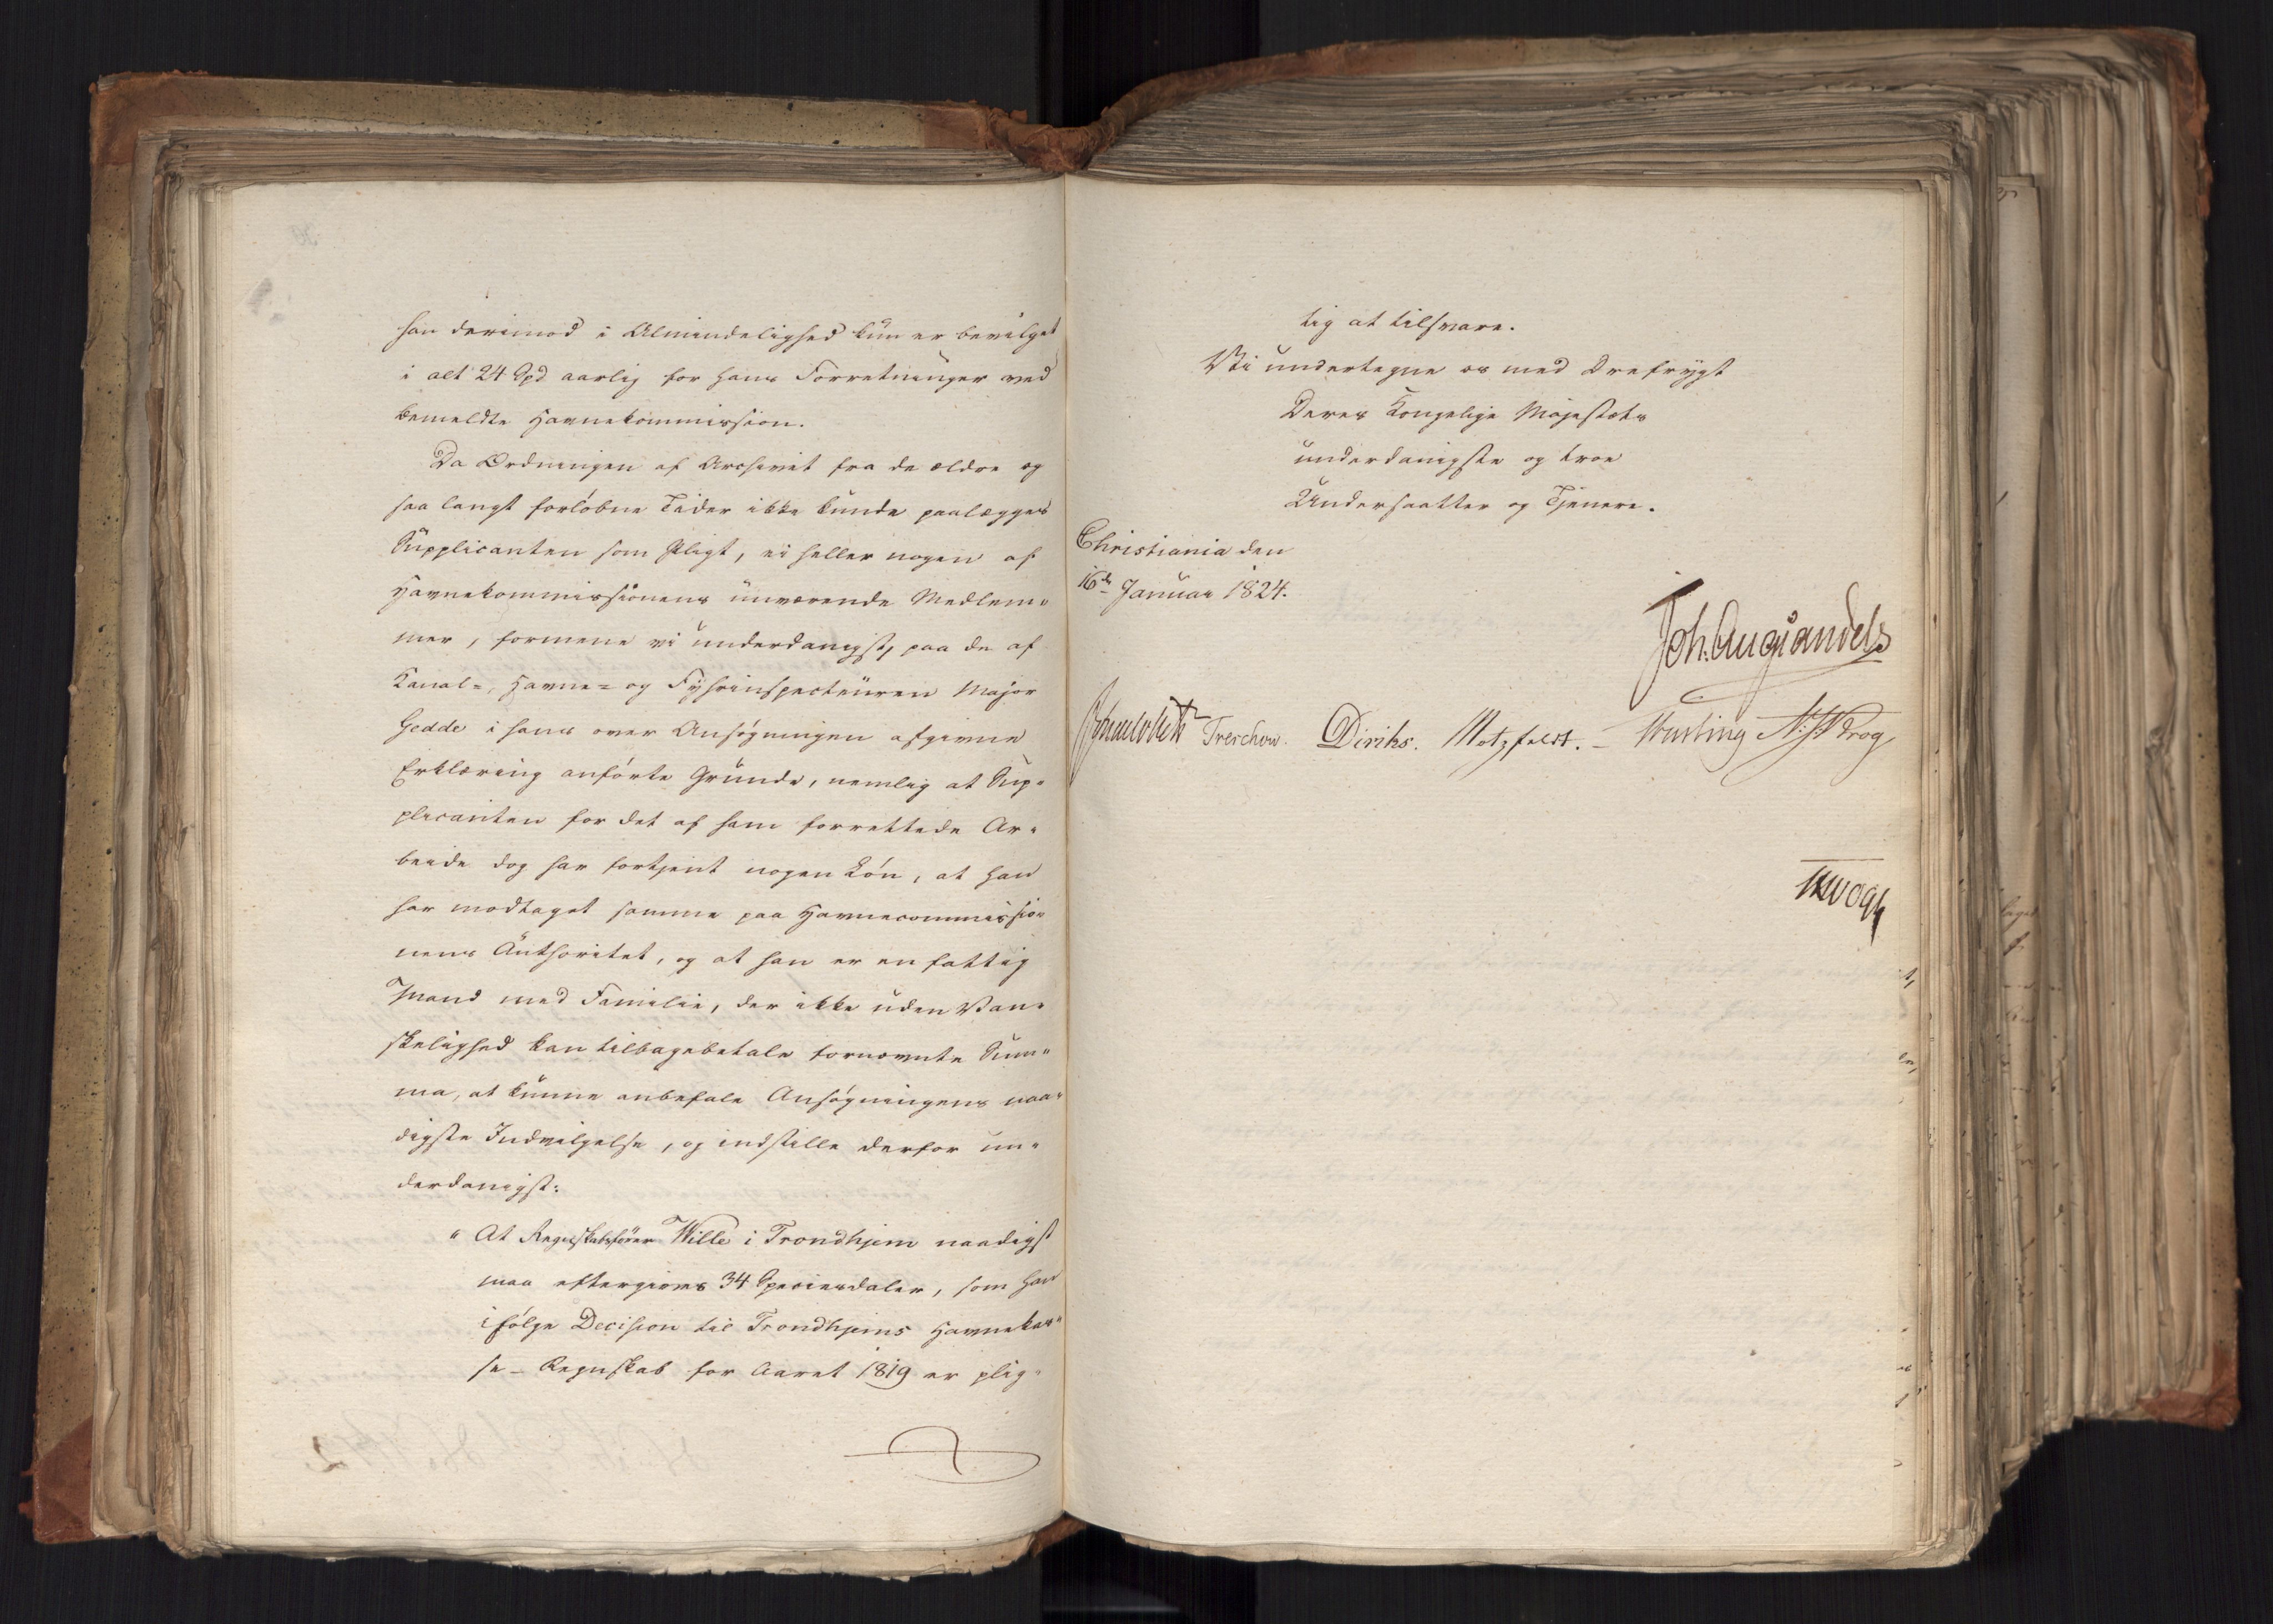 han derimod i Almindelighed kun er bevilget
i alt 24 Spd aarlig for hans Forretninger ved
bemeldte Havnekommission.
Da Ordningen af Archivet fra de ældre og
saa langt forløbne Tider ikke kunde paalægges
Supplicanten som Pligt, ei heller nogen af
Havnekommissionens nuværende Medlem-
mer, formene vi underdanigst, paa de af
Kanal-, Havne- og Fyhrinspecteuren Major
Gedde i hans over Ansøgningen afgivne
Erklæring anførte Grunde, nemlig at Sup-
plicanten for det af ham forrettede Ar-
beide dog har fortjent nogen Løn, at han
har modtaget samme paa Havnecommissio-
nens Authoritet, og at han er en fattig
Mand med Familie, der ikke uden Van-
skelighed kan tilbagebetale fornævnte Sum-
ma, at kunne anbefale Ansøgningens naa-
digste Indvilgelse, og indstille derfor un-
derdanigst:
" At Regnskabsfører Wille i Trondhjem naadigst
maa eftergives 34 Speciesdaler, som han
ifølge Decision til Trondhjems Havnekas-
se-Regnskab for Aaret 1819 er plig-
tig at tilsvare.
Vi undertegne os med Ærefrygt
Deres Kongelige Majestæts
underdanigste og troe
Undersaatter og Tjenere.
Christiania den
16de Januar 1824.
Joh. Aug Sandels
Treschow. Diriks. Motzfeldt. Krog
Vogt